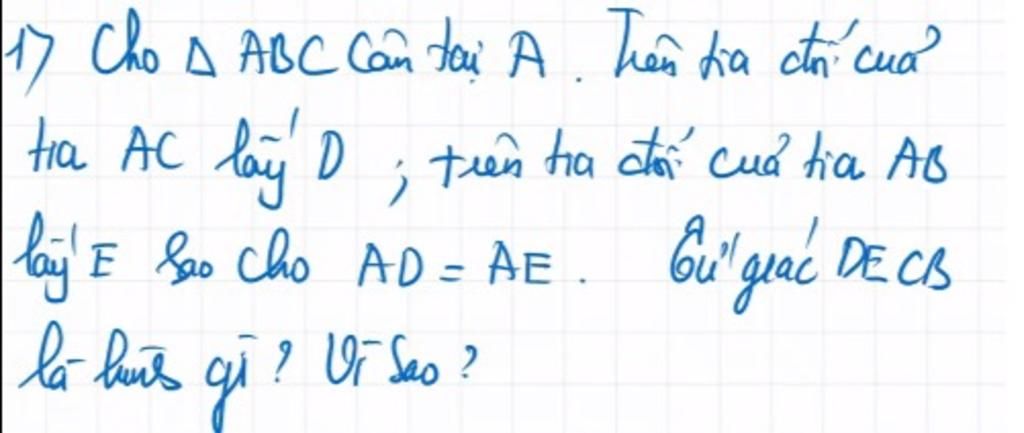 1) Cho Δ ABC cân tại A. Trên tia đối của
tia AC lấy D ; trên tia đối của tia AB
lấy E sao cho AD = AE. Tứ giác DECB
là hình gì? Vì sao?